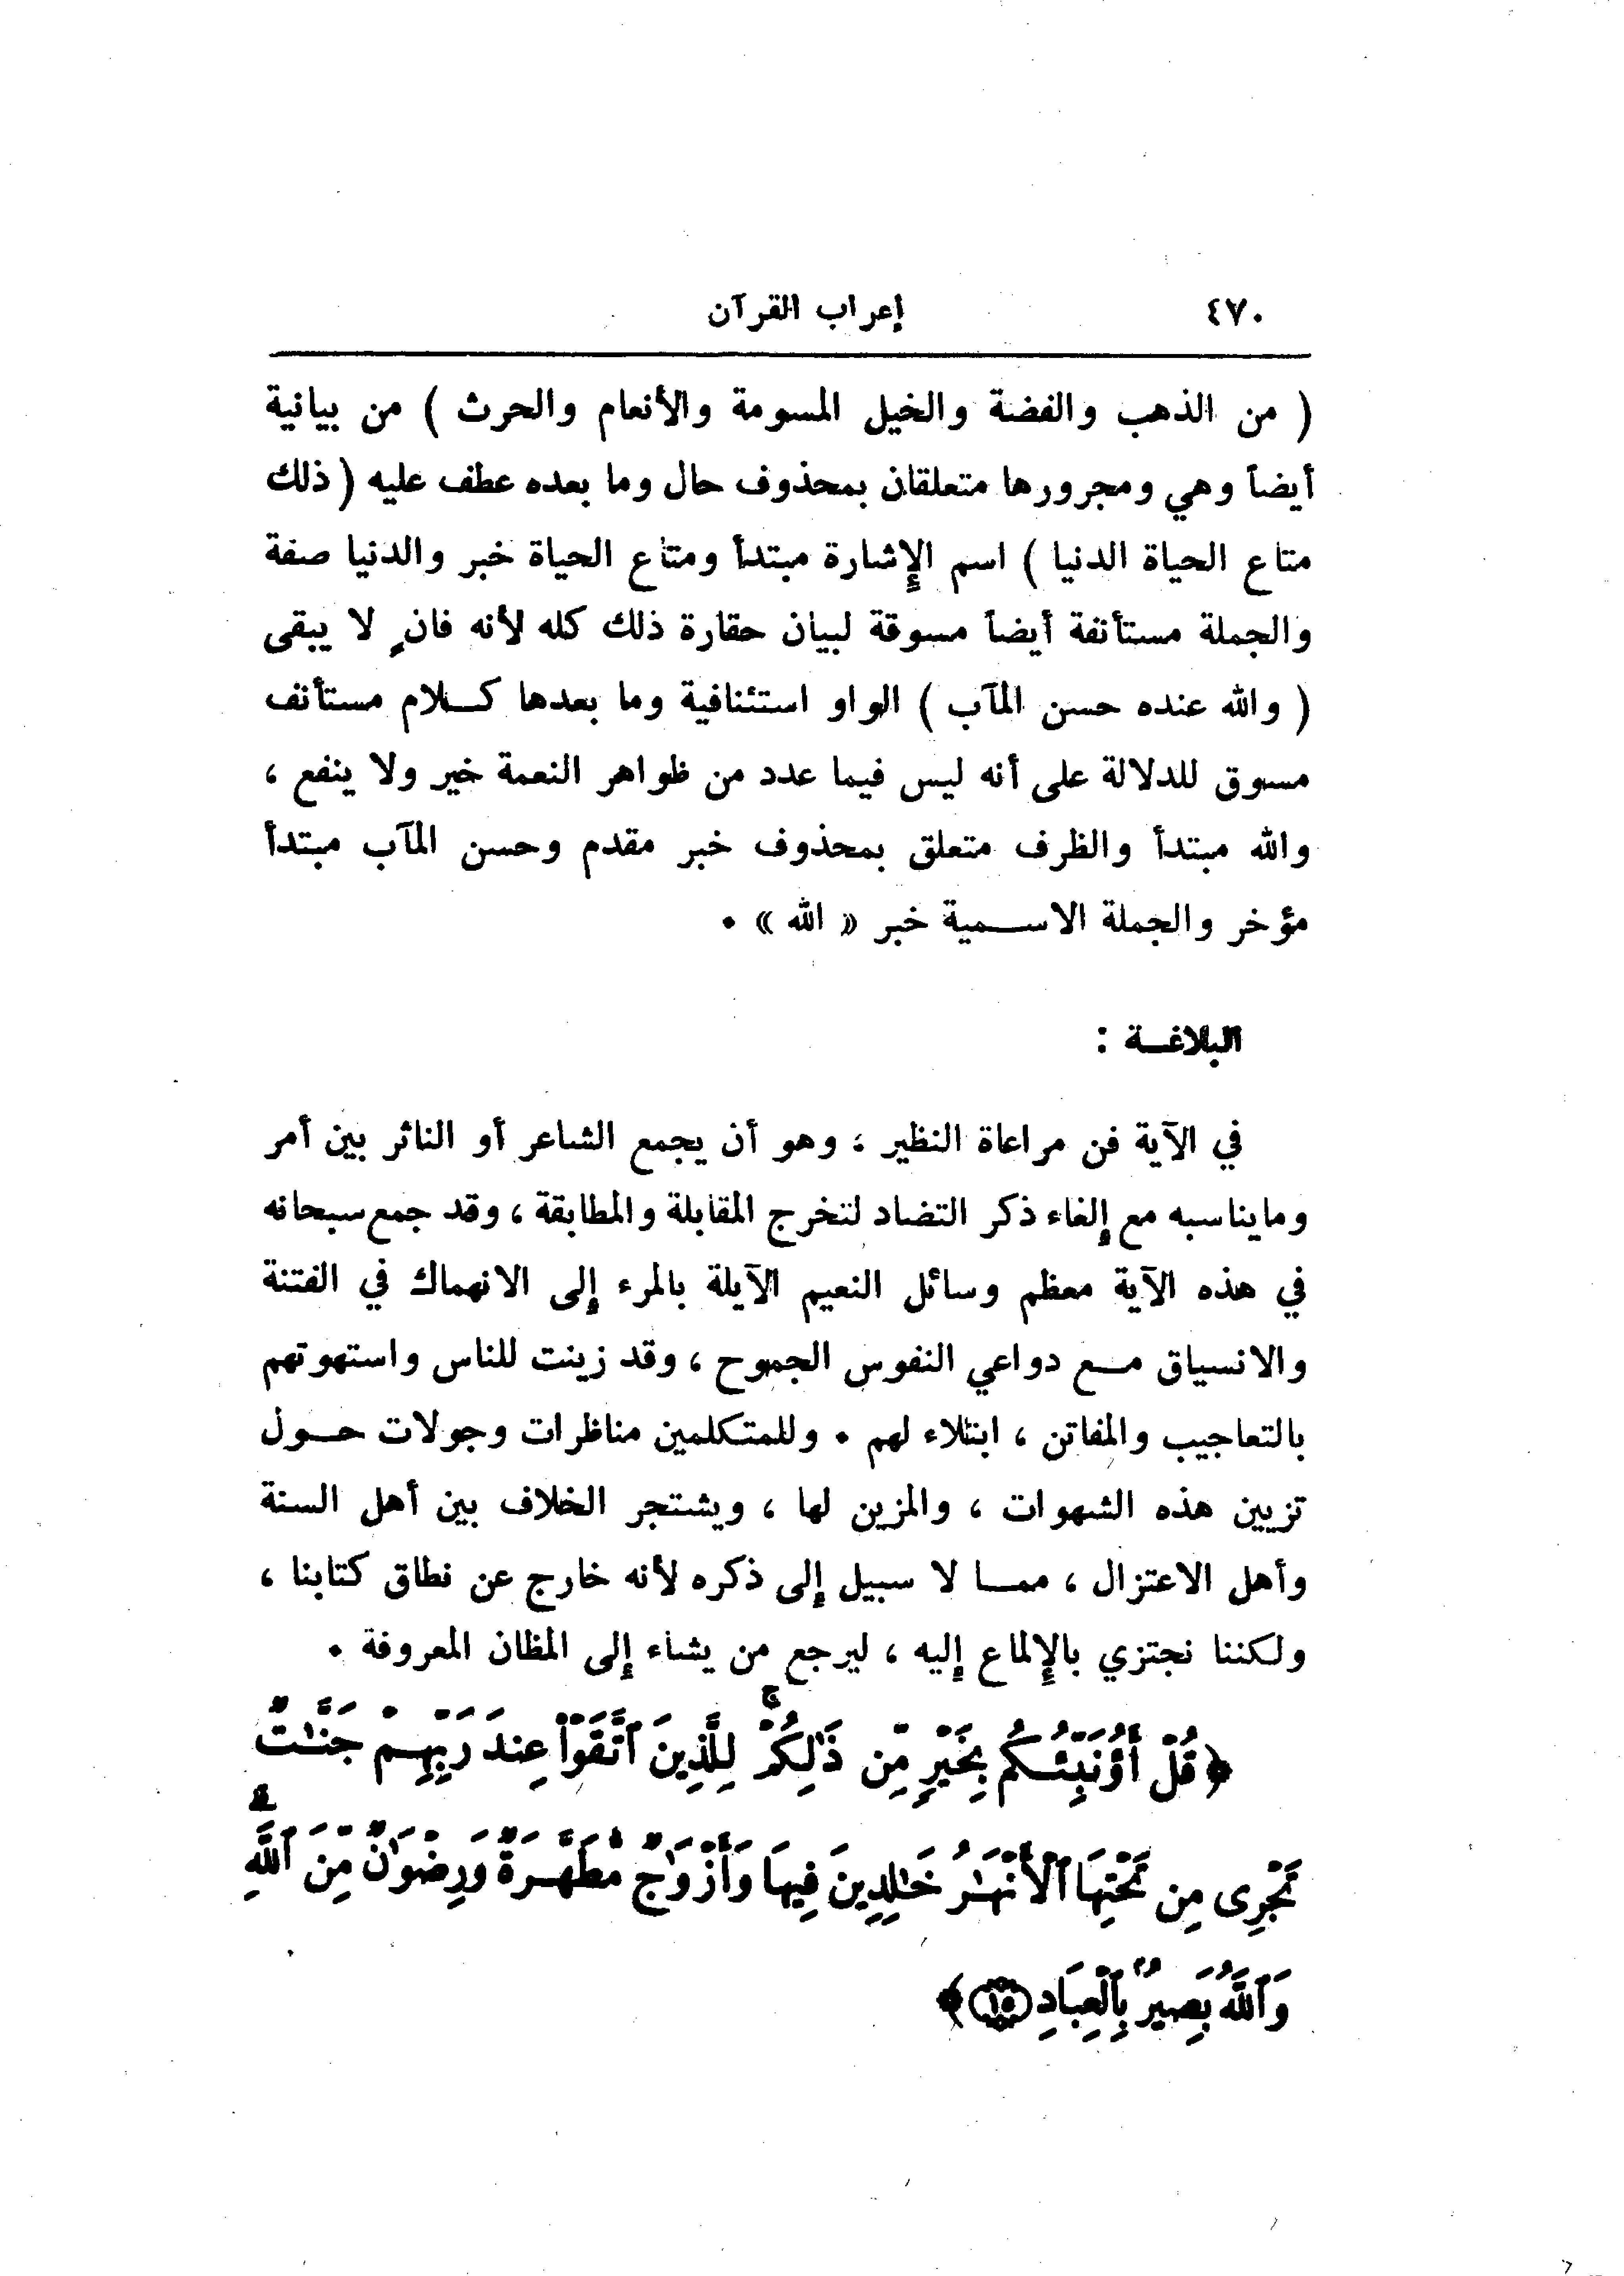 ٤٧٠ إعراب القرآن
( من الذهب والفضة والخيل المسومة والأنعام والحرث ) من بيانية
أيضاً وهي ومجرورها متعلقان بمحذوف حال وما بعده عطف عليه ( ذلك
متاع الحياة الدنيا ) اسم الإشارة مبتدأ ومتاع الحياة خبر والدنيا صفة
والجملة مستأنفة أيضاً مسوقة لبيان حقارة ذلك كله لأنه فانٍ لا يبقى
( والله عنده حسن المآب ) الواو استئنافية وما بعدها كــلام مستأنف
مسوق للدلالة على أنه ليس فيما عدد من ظواهر النعمة خير ولا ينفع ،
والله مبتدأ والظرف متعلق بمحذوف خبر مقدم وحسن المآب مبتدأ
مؤخر والجملة الاســمية خبر « الله » ٠
البلاغــة :
في الآية فن مراعاة النظير ، وهو أن يجمع الشاعر أو الناثر بين أمر
ومايناسبه مع إلغاء ذكر التضاد لتخرج المقابلة والمطابقة ، وقد جمع سبحانه
في هذه الآية معظم وسائل النعيم الآيلة بالمرء إلى الانهماك في الفتنة
والانسياق مــع دواعي النفوس الجموح ، وقد زينت للناس واستهوتهم
بالتعاجيب والمفاتن ، ابتلاء لهم ٠ وللمتكلمين مناظرات وجولات حــول
تزيين هذه الشهوات ، والمزين لها ، ويشتجر الخلاف بين أهل السنة
وأهل الاعتزال ، ممــا لا سبيل إلى ذكره لأنه خارج عن نطاق كتابنا ،
ولكننا نجتزي بالإلماع إليه ، ليرجع من يشاء إلى المظان المعروفة ٠
﴿قُلْ أَؤُنَبِّئُكُم بِخَيْرٍ مِّن ذَٰلِكُمْ ۚ لِلَّذِينَ ٱتَّقَوْا۟ عِندَ رَبِّهِمْ جَنَّـٰتٌ
تَجْرِى مِن تَحْتِهَا ٱلْأَنْهَـٰرُ خَـٰلِدِينَ فِيهَا وَأَزْوَٰجٌ مُّطَهَّرَةٌ وَرِضْوَٰنٌ مِّنَ ٱللَّهِ ۗ
وَٱللَّهُ بَصِيرٌۢ بِٱلْعِبَادِ ١٥﴾